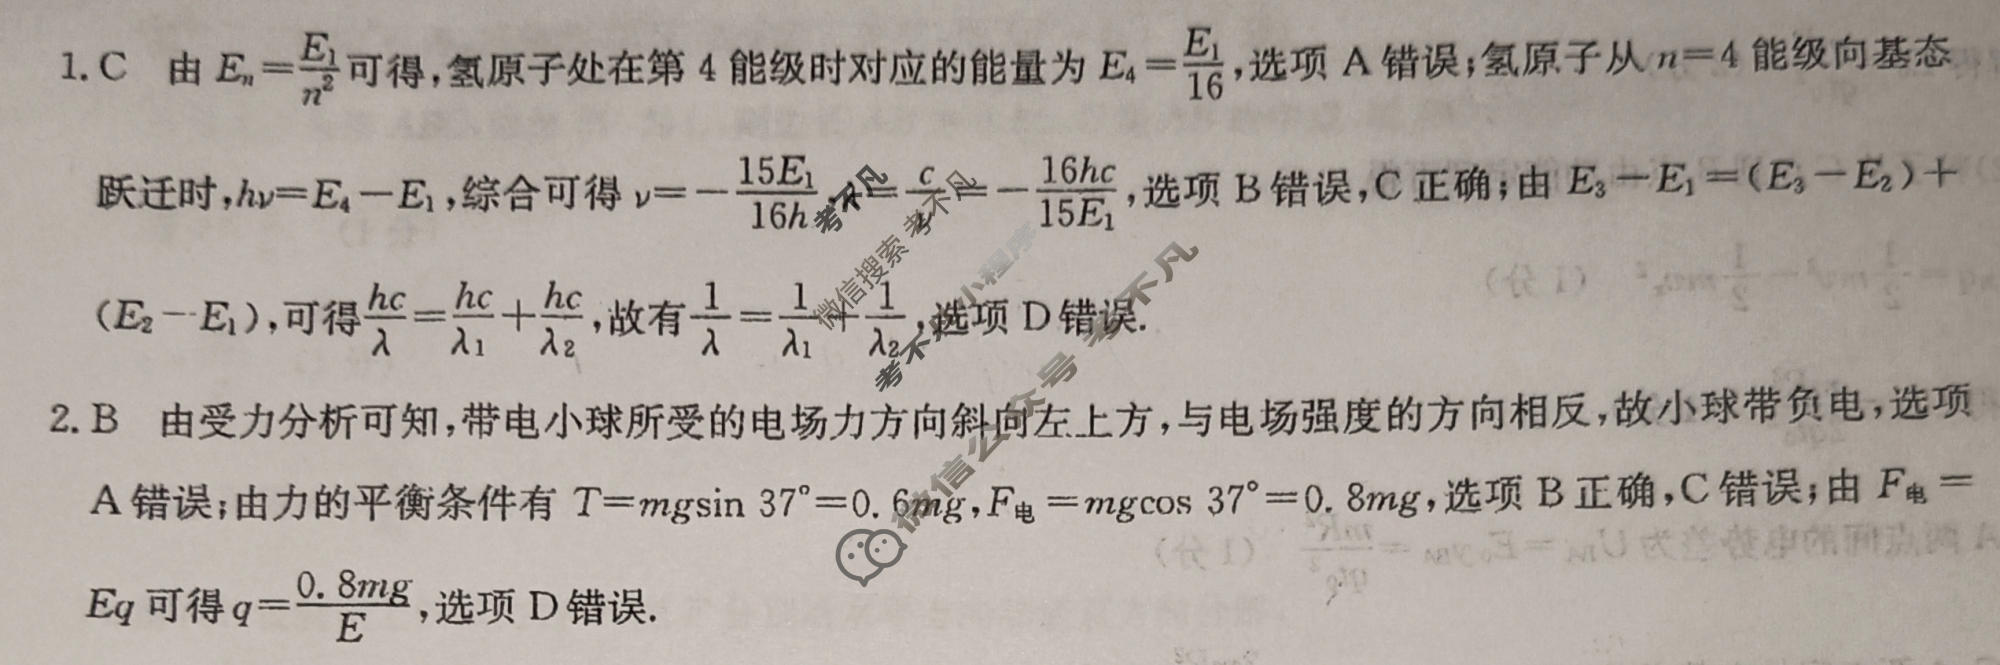 1. C 由 Eₙ=E₁/n²可得,氢原子处在第 4 能级时对应的能量为 E₄=E₁/16,选项 A 错误;氢原子从 n=4 能级向基态
跃迁时,hν=E₄-E₁,综合可得 ν=-15E₁/16h,λ=c/ν=-16hc/15E₁,选项 B 错误,C 正确;由 E₃-E₁=(E₃-E₂)+
(E₂-E₁),可得hc/λ=hc/λ₁+hc/λ₂,故有1/λ=1/λ₁+1/λ₂,选项 D 错误.
2. B 由受力分析可知,带电小球所受的电场力方向斜向左上方,与电场强度的方向相反,故小球带负电,选项
A 错误;由力的平衡条件有 T=mgsin 37°=0.6mg,F电=mgcos 37°=0.8mg,选项 B 正确,C 错误;由 F电=
Eq 可得 q=0.8mg/E,选项 D 错误.
考不凡
微信搜索 考不凡
考不凡小程序
微信公众号 考不凡